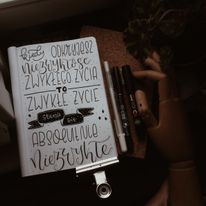 kiedy ODKRYJESZ
NIEZWYKŁOŚĆ
ZWYKŁEGO ŻYCIA
TO
ZWYKŁE ŻYCIE
STANIE SIĘ
ABSOLUTNIE
NIEZWYKŁE